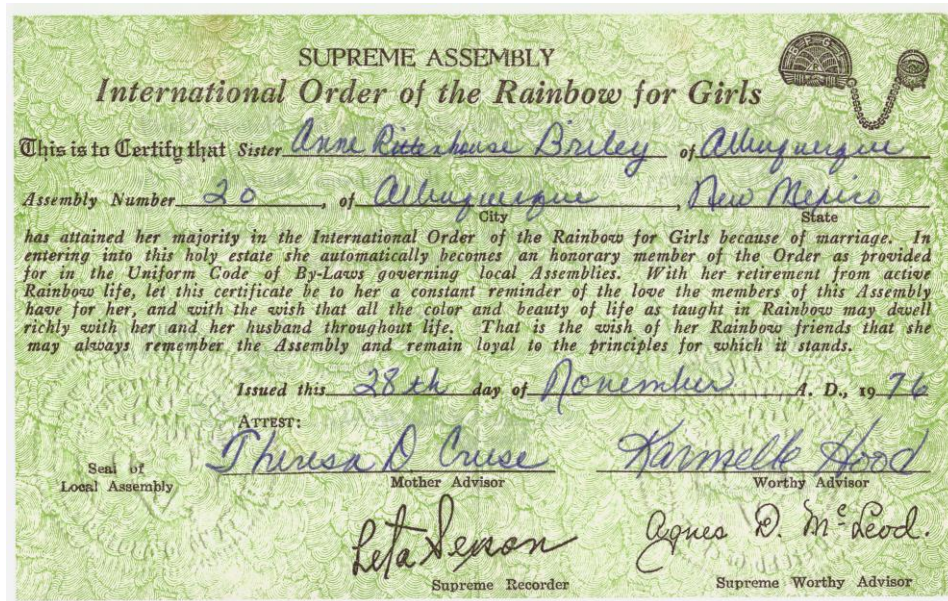 B F C L
SUPREME ASSEMBLY
International Order of the Rainbow for Girls
This is to Certify that Sister Anne Rittenhouse Briley of Albuquerque
Assembly Number 20, of Albuquerque, New Mexico
City State
has attained her majority in the International Order of the Rainbow for Girls because of marriage. In
entering into this holy estate she automatically becomes an honorary member of the Order as provided
for in the Uniform Code of By-Laws governing local Assemblies. With her retirement from active
Rainbow life, let this certificate be to her a constant reminder of the love the members of this Assembly
have for her, and with the wish that all the color and beauty of life as taught in Rainbow may dwell
richly with her and her husband throughout life. That is the wish of her Rainbow friends that she
may always remember the Assembly and remain loyal to the principles for which it stands.
Issued this 28th day of November A. D., 1976
ATTEST:
Theresa D Cruse Karmelle Hood
Seal of
Local Assembly
Mother Advisor Worthy Advisor
Leta Sexson Agnes D. McLeod.
Supreme Recorder Supreme Worthy Advisor